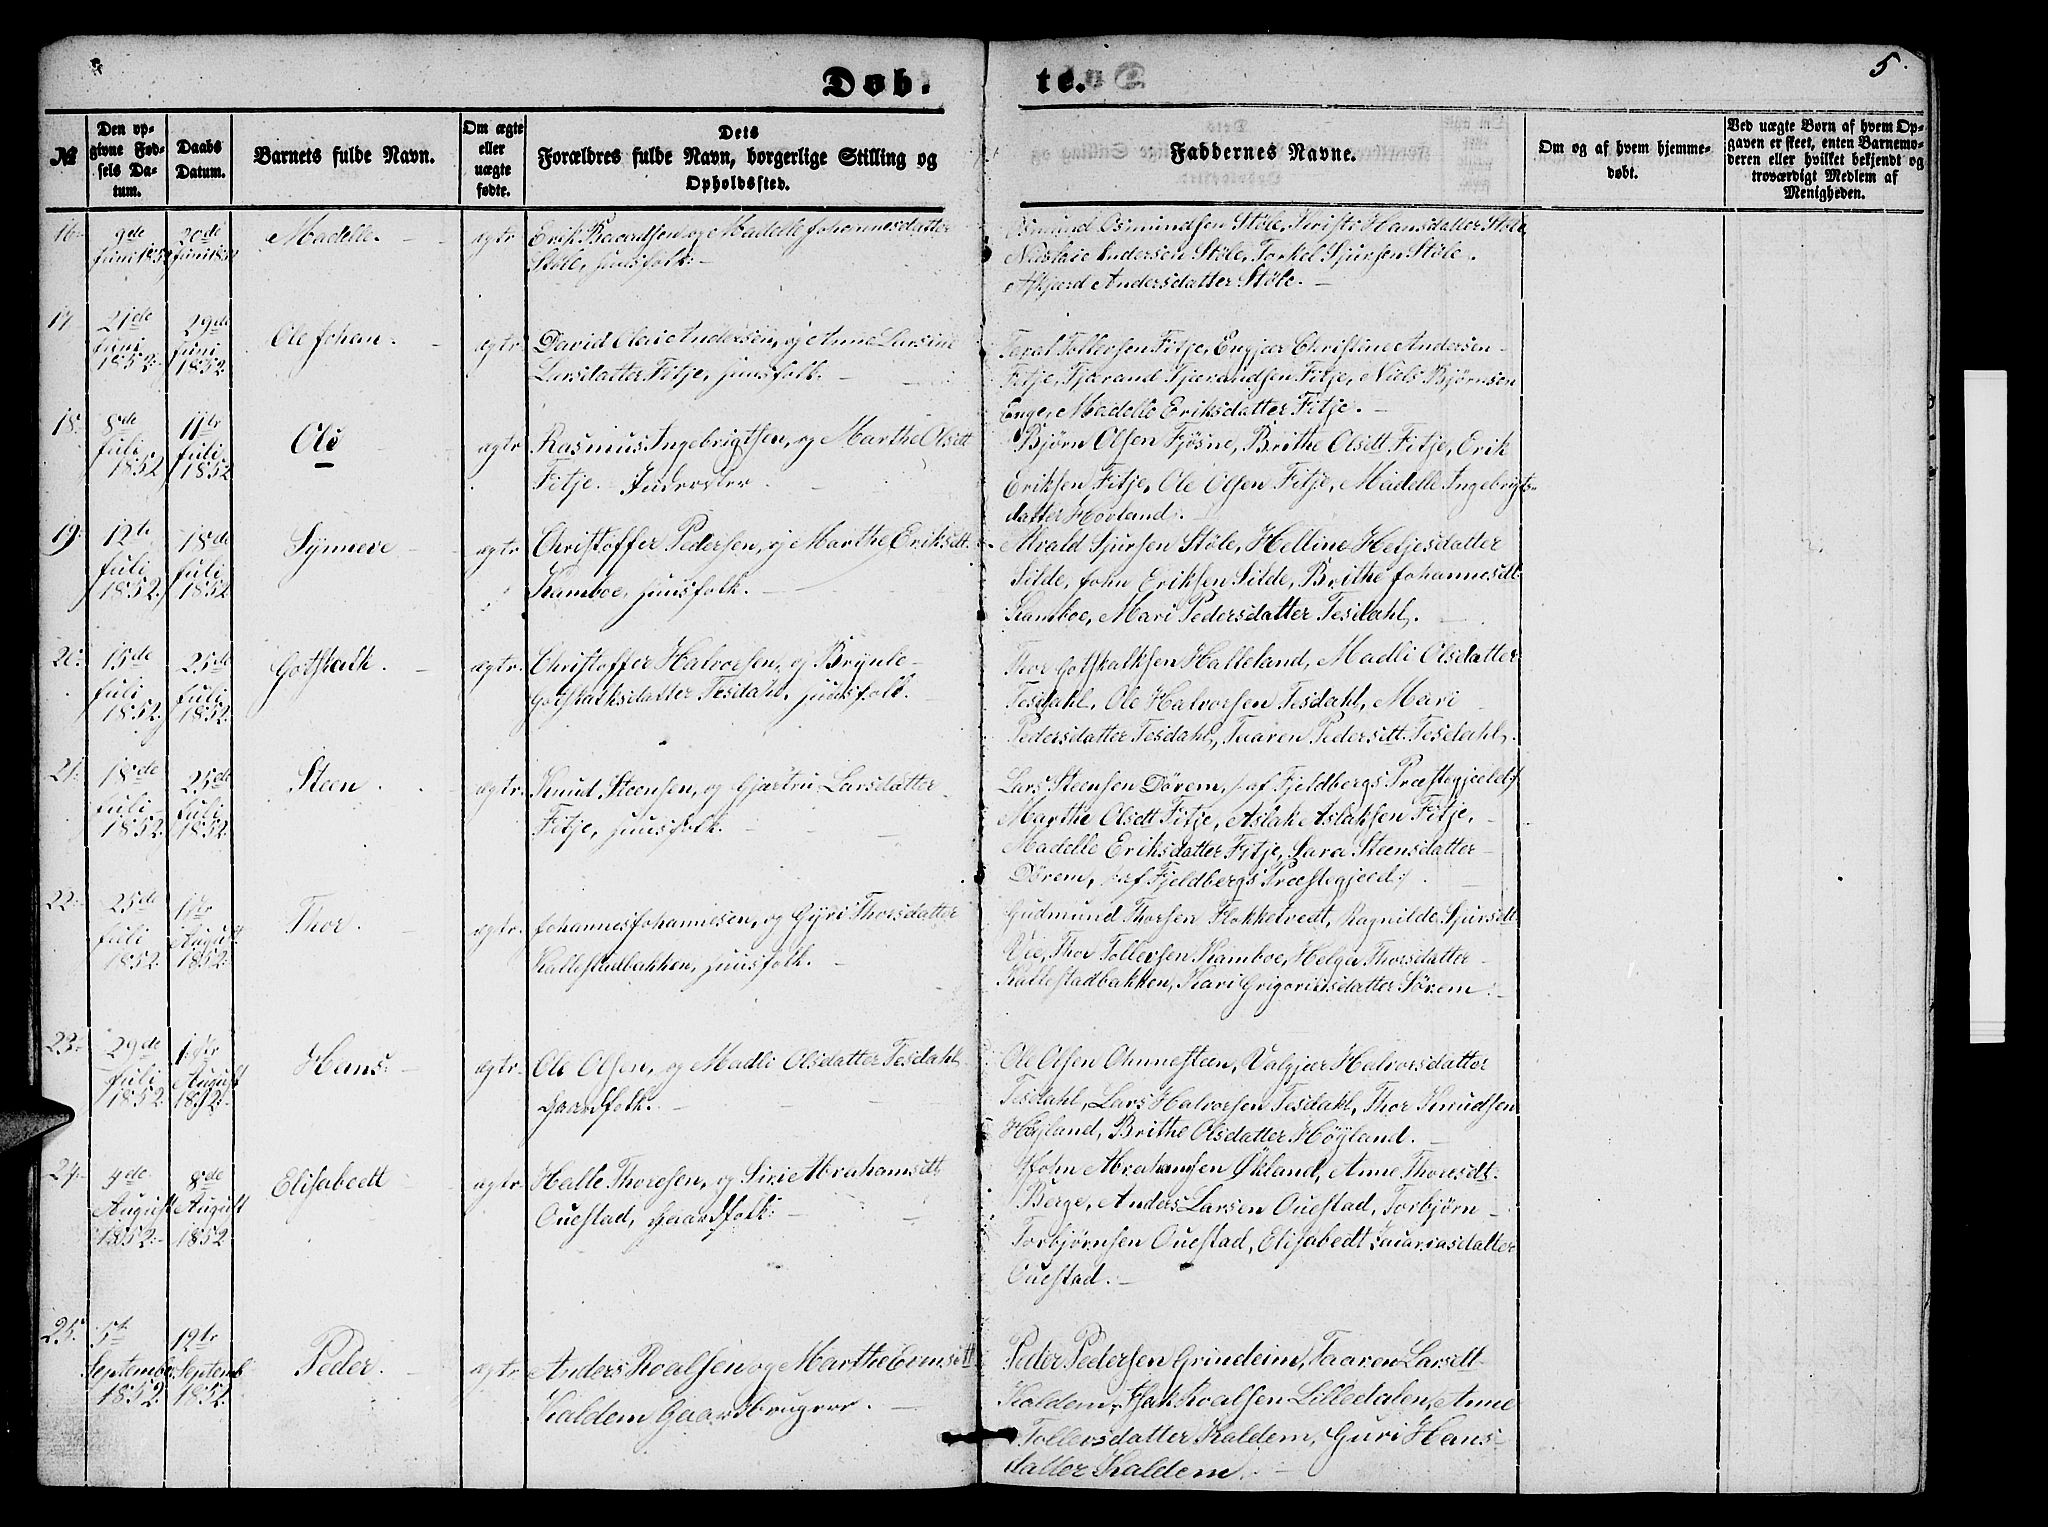 5.
Døb- te.
№
Den op-
givne Fød-
sels Da-
tum.
Daabs
Datum.
Barnets fulde Navn.
Om ægte
eller
uægte
fødte.
Dets
Forældres fulde Navn, borgerlige Stilling og
Opholdssted.
Faddernes Navne.
Om og af hvem hjemme-
døbt.
Ved uægte Børn af hvem Op-
gaven er skeet, enten Barnemo-
deren eller hvilket bekjendt og
troværdigt Medlem af
Menigheden.
16. 9de Juni 1852 20de Juni 1852 Madelle. ægte
Erik Baardsen og Madelle Johannesdatter
Støle, huusfolk.
Osmund Osmundsen Støle, Kristi Hansdatter Støle
Nicolaie Andersen Støle, Torkel Sjursen Støle.
Andersdatter Støle.
17. 21de Juni 1852. 29de Juni 1852. Ole Johan. ægte
David Olai Andersen, og Anne Larsine
Larsdatter Fitje, huusfolk.
Tollevsen Fitje, Engjær Christine Andersen
Fitje, Tjærand Tjærandsen Fitje, Niels Bjørnsen
Enge, Madelle Eriksdatter Fitje.
18. 8de Juli 1852 11te Juli 1852 Ole ægte
Rasmus Ingebrigtsen, og Marthe Olsdtt
Fitje. Inderster.
Bjørn Olsen Fjøsne, Brithe Olsdtt Fitje, Erik
Eriksen Fitje, Ole Olsen Fitje, Madelle Ingebrigts-
datter Hovland.
19. 12te Juli 1852. 18de Juli 1852 Synneve ægte
Christoffer Pedersen, og Marthe Eriksdt.
Kamboe, huusfolk.
Alvald Sjursen Støle, Helline Heljesdatter
Silde, John Eriksen Silde, Brithe Johannesdt.
Kamboe, Mari Pedersdatter Tesdahl.
20. 15de Juli 1852. 25de Juli 1852. Gotskalk. ægte.
Christoffer Halvorsen, og Brynle
Gotskalksdatter Tesdahl, huusfolk.
Thor Gotskalksen Halleland, Madli Olsdatter
Tesdahl, Ole Halvorsen Tesdahl, Mari
Pedersdatter Tesdahl, Taaren Pedersdtt. Tesdahl.
21. 18de Juli 1852. 25de Juli 1852. Steen. ægte.
Knud Steensen, og Gjærtru Larsdatter
Fitje, huusfolk.
Lars Steensen Dörem, /: af Fjeldbergs Præstegjeeld:/
Marthe Olsdtt Fitje, Aslak Aslaksen Fitje,
Madelle Eriksdatter Fitje, Sara Steensdatter
Dörem, /: af Fjeldbergs Præstegjeed:/
22. 25de Juli 1852. 1ste August 1852. Thor. ægte.
Johannes Johannesen, og Gyri Thorsdatter
Kallestadbakken, huusfolk.
Gudmund Thorsen Flokketvedt, Ragnilde Sjursdtt.
Vie, Thor Tollevsen Kamboe, Helga Thorsdatter
Kallestadbakken, Kari Grigoriusdatter Sörem.
23. 29de Juli 1852. 1ste August 1852. Hans. ægte.
Ole Olsen, og Madli Olsdatter Tesdahl
Gaardfolk.
Ole Olsen Ohnnesteen, Valgjær Halvorsdatter
Tesdahl, Lars Halvorsen Tesdahl, Thor Knudsen
Høyland, Brithe Olsdatter Høyland.
24. 4de August 1852. 8de August 1852. Elisabedt ægte.
Halle Thoresen, og Siri Abrahamsdtt.
Ouestad, Gaardfolk.
John Abrahamsen Økland, Anne Thoresdt.
Berge, Anders Larsen Ouestad, Torbjørn
Torbjørnsen Ouestad, Elisabedt Zacariasdatter
Ouestad.
25. 5te September 1852. 12te Septemb 1852. Peder. ægte
Anders Roalsen og Marthe
Kaldem Gaardbruger.
Peder Pedersen Grindeim, Taaren Larsdtt
Kaldem, Roalsen Lilledalen, Anne
Tollevsdatter Kaldem, Guri Hans-
datter Kaldem.